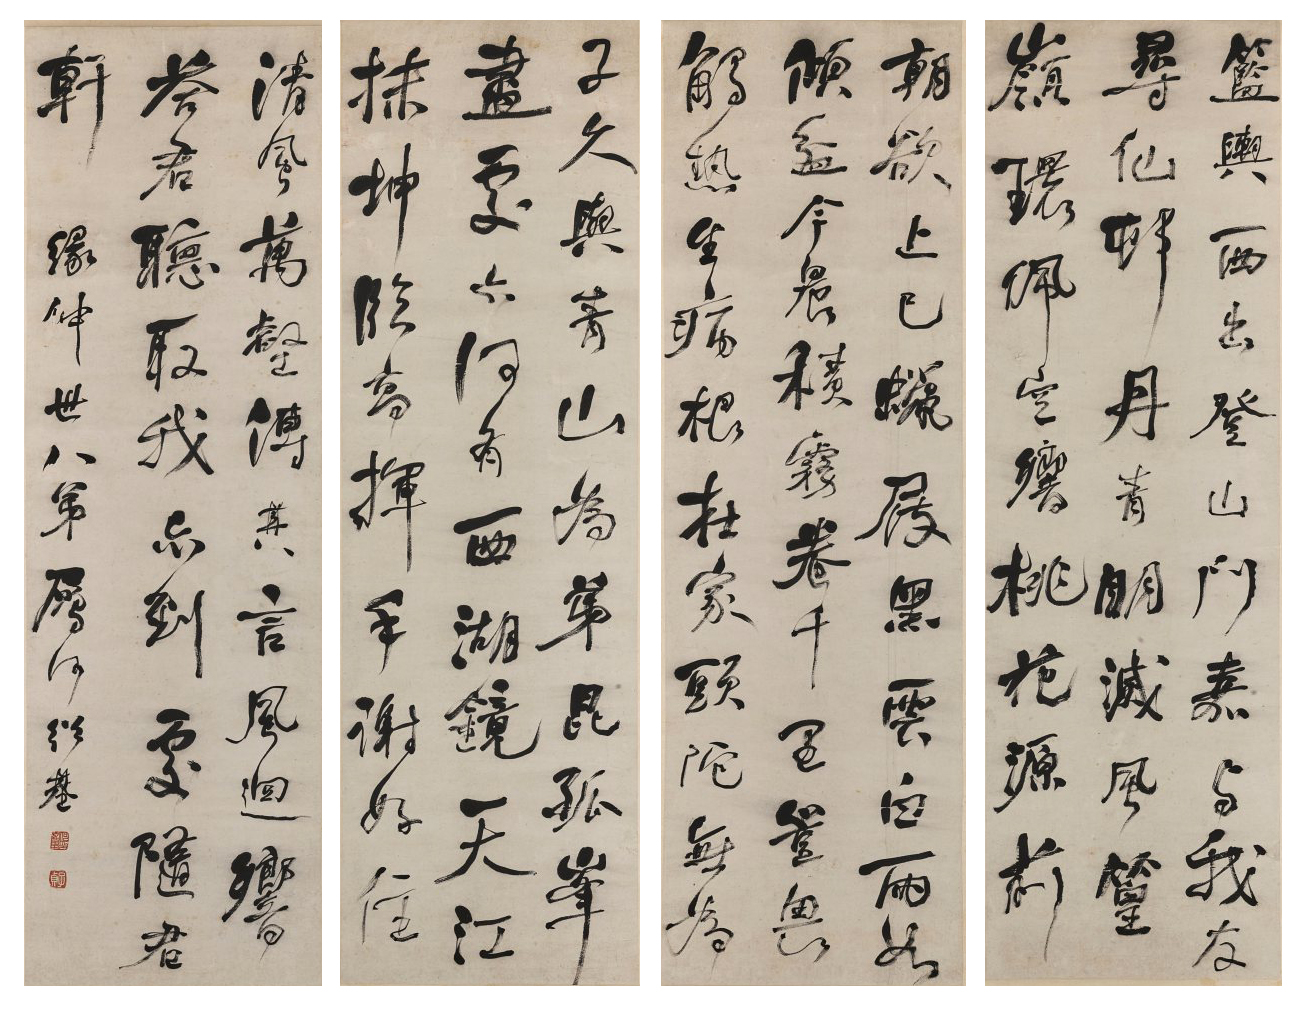 籃輿西出登山門嘉与我友
尋仙邨丹青明滅風篁
嶺環珮空響桃花源前
朝欲上已蠟屐黑雲白雨如
傾盆今晨積霧卷千里豈畏
觸熱生病根在家頭陀無為
子久與青山為弟昆孤峯
盡處亦何有西湖鏡天江
抹坤臨高揮手謝好住
清風萬壑傳其言風迴響
答君聽取我亦到處隨君
軒
緣仲世八弟屬何紹基